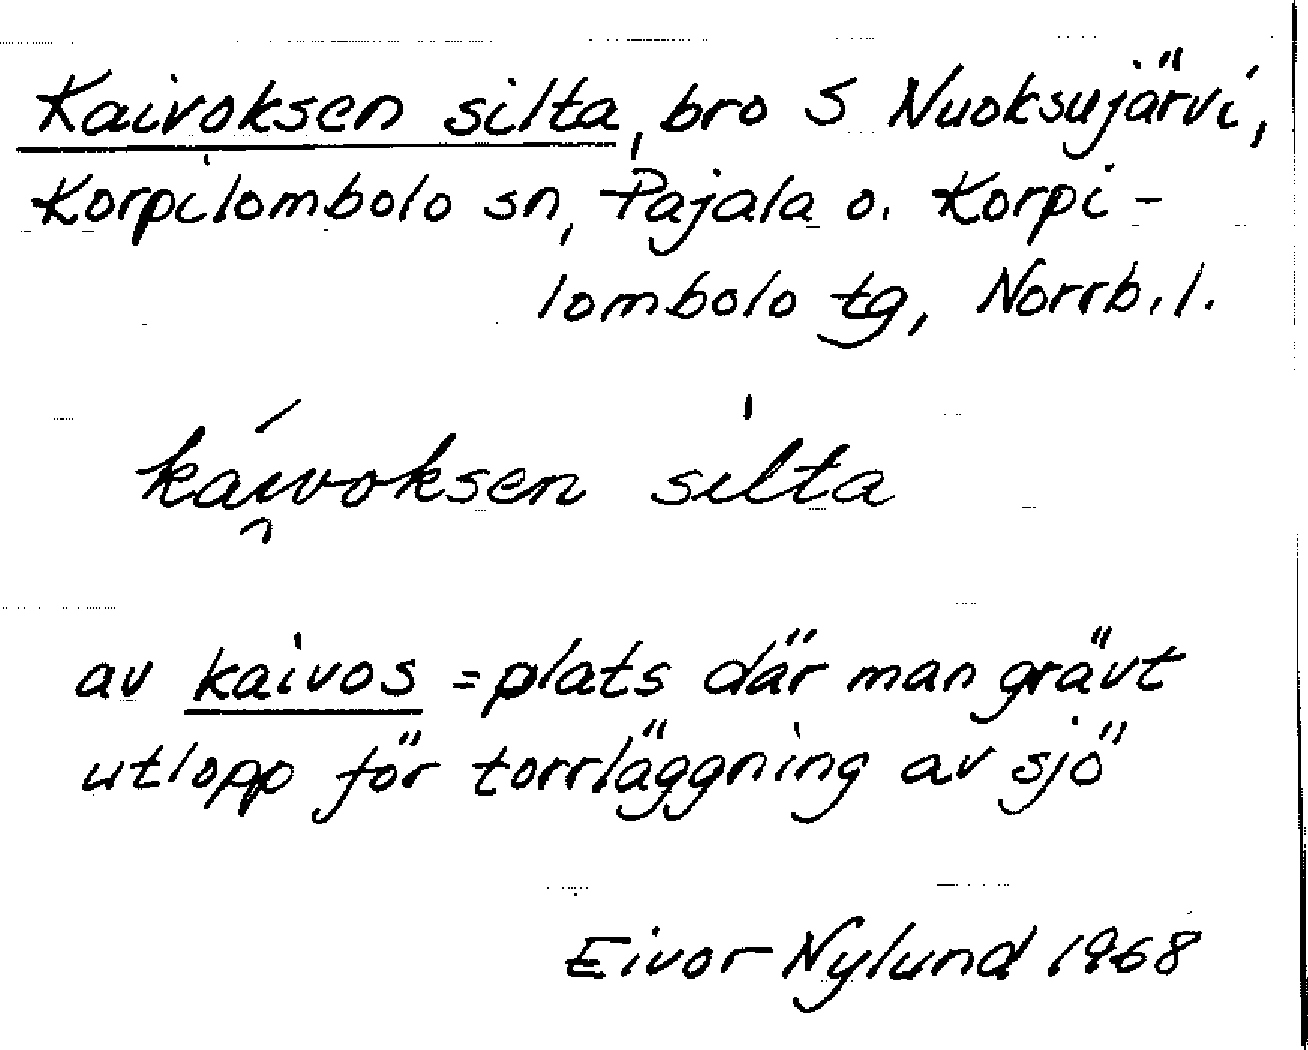 Kaivoksen silta, bro S Nuoksujärvi,
Korpilombolo sn, Pajala o. Korpi-
lombolo tg, Norrb. l.
kai̯voksen silta
av kaivos = plats där man grävt
utlopp för torrläggning av sjö
Eivor Nylund 1968